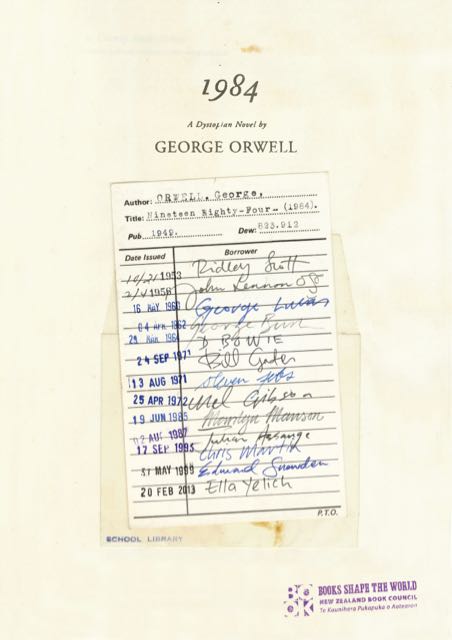 1984
A Dystopian Novel by
GEORGE ORWELL
Author: ORWELL, George.
Title: Nineteen Eighty-Four. (1984).
Pub. 1949. Dew: 823.912
Date Issued Borrower
10/21 1953 Ridley Scott
2/4 1956 John Lennon
16 MAY 1960 George Lucas
04 APR 1962 George Bush
29 MAR 1964 D BOWIE
24 SEP 1971 Bill Gates
13 AUG 1971 Steven Jobs
25 APR 1972 Mel Gibson
19 JUN 1985 Marilyn Manson
02 AUG 1987 Julian Assange
17 SEP 1993 Chris Martin
31 MAY 1999 Edward Snowden
20 FEB 2013 Ella Yelich
P.T.O.
SCHOOL LIBRARY
BOOK
BOOKS SHAPE THE WORLD
NEW ZEALAND BOOK COUNCIL
Te Kaunihera Pukapuka o Aotearoa